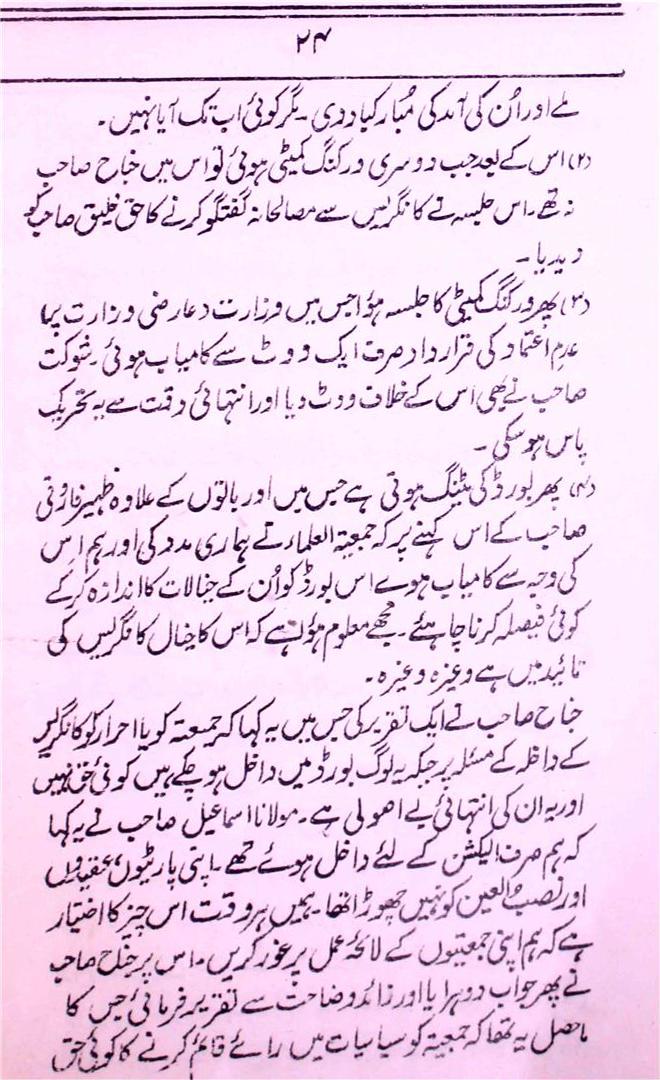 ۲۴
ملے اور اُن کی آمد کی مُبارکباد دی ۔ مگر کوئی اب تک آیا نہیں ۔
(۲) اس کے بعد جب دوسری ورکنگ کمیٹی ہوئی تو اس میں جناح صاحب
نہ تھے ۔ اس جلسہ نے کانگریس سے مصالحانہ گفتگو کرنے کا حق خلیق صاحب کو
دیدیا ۔
(۳) پھر ورکنگ کمیٹی کا جلسہ ہوا جس میں وزارت (عارضی وزارت) پر
عدم اعتماد کی قرارداد صرف ایک ووٹ سے کامیاب ہوئی ۔ شوکت
صاحب نے بھی اس کے خلاف ووٹ دیا اور انتہائی دقت سے یہ تحریک
پاس ہو سکی ۔
(۴) پھر بورڈ کی میٹنگ ہوتی ہے جس میں اور باتوں کے علاوہ ظہیر فاروقی
صاحب کے اس کہنے پر کہ جمعیۃ العلماء نے ہماری مدد کی اور ہم اس
کی وجہ سے کامیاب ہوے اس بورڈ کو اُن کے خیالات کا اندازہ کرکے
کوئی فیصلہ کرنا چاہئے ۔ مجھے معلوم ہوا ہے کہ اس کا خیال کانگریس کی
تائید میں ہے وغیرہ وغیرہ ۔
جناح صاحب نے ایک تقریر کی جس میں یہ کہا کہ جمیعتہ کو یا احرار کو کانگریس
کے داخلہ کے مسئلہ پر جبکہ یہ لوگ بورڈ میں داخل ہو چکے ہیں کوئی حق نہیں
اور یہ ان کی انتہائی بے اصولی ہے ۔ مولانا اسماعیل صاحب نے یہ کہا
کہ ہم صرف الیکشن کے لئے داخل ہوئے تھے ۔ اپنی پارٹیوں، عقیدوں
اور نصب العین کو نہیں چھوڑا تھا ۔ ہمیں ہر وقت اس چیز کا اختیار
ہے کہ ہم اپنی جمعیتوں کے لائحۂ عمل پر غور کریں ۔ اس پر جناح صاحب
نے پھر جواب دوہرایا اور زائد وضاحت سے تقریر فرمائی جس کا
ماحصل یہ تھا کہ جمعیۃ کو سیاسیات میں رائے قائم کرنے کا کوئی حق